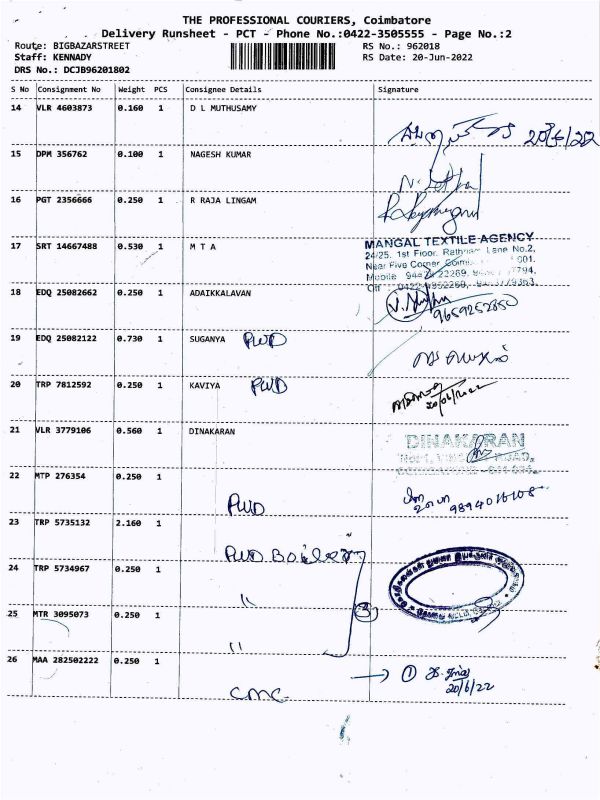 THE PROFESSIONAL COURIERS, Coimbatore
Delivery Runsheet - PCT - Phone No.:0422-3505555 - Page No.:2
Route: BIGBAZARSTREET RS No.: 962018
Staff: KENNADY RS Date: 20-Jun-2022
DRS No.: DCJB96201802
S No Consignment No Weight PCS Consignee Details Signature
14 VLR 4603873 0.160 1 D L MUTHUSAMY
20/6/22
15 DPM 356762 0.100 1 NAGESH KUMAR
16 PGT 2356666 0.250 1 R RAJA LINGAM
17 SRT 14667488 0.530 1 M T A MANGAL TEXTILE AGENCY
24/25, 1st Floor, Lane No.2,
Near Five Corner 001.
Mobile
18 EDQ 25082662 0.250 1 ADAIKKALAVAN
9659252850
19 EDQ 25082122 0.730 1 SUGANYA PWD
20 TRP 7812592 0.250 1 KAVIYA PWD
20/06/2022
21 VLR 3779106 0.560 1 DINAKARAN DINAKARAN
22 MTP 276354 0.250 1
PWD
23 TRP 5735132 2.160 1
PWD
24 TRP 5734967 0.250 1
"
3
25 MTR 3095073 0.250 1
"
26 MAA 282502222 0.250 1 1
20/6/22
CMC